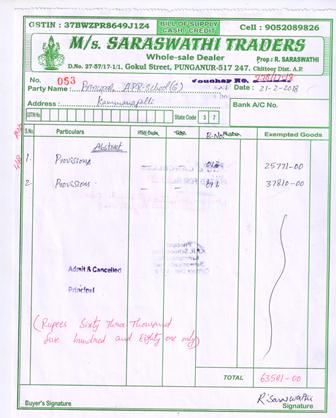 GSTIN : 37BWZPR8649J1Z4
BILL OF SUPPLY
CASH / CREDIT
Cell : 9052089826
M/s. SARASWATHI TRADERS
Whole-sale Dealer
Prop.: R. SARASWATHI
D.No. 37-57/17-1/1, Gokul Street, PUNGANUR-517 247. Chittoor Dist. A.P.
No. 053
Voucher No.
Party Name : Principal APR-School(G)
Date : 21-2-2018
Address :
Bank A/C No.
GSTIN No.
State Code 3 7
S.No. Particulars Exempted Goods
Abstract
1. Provisions 25771-00
2- Provisions 37810-00
Admit & Cancelled
Principal
(Rupees Sixty Three Thousand
five hundred and Eighty one only)
TOTAL 63581-00
R. Saraswathi
Buyer's Signature Signature